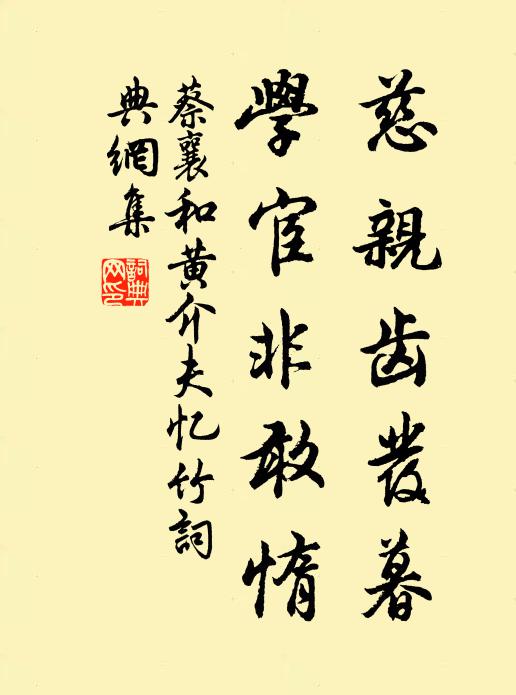 慈親齿發暮
學宦非敢惰
蔡襄和黄介夫忆竹詞
典網集
詞典
网印